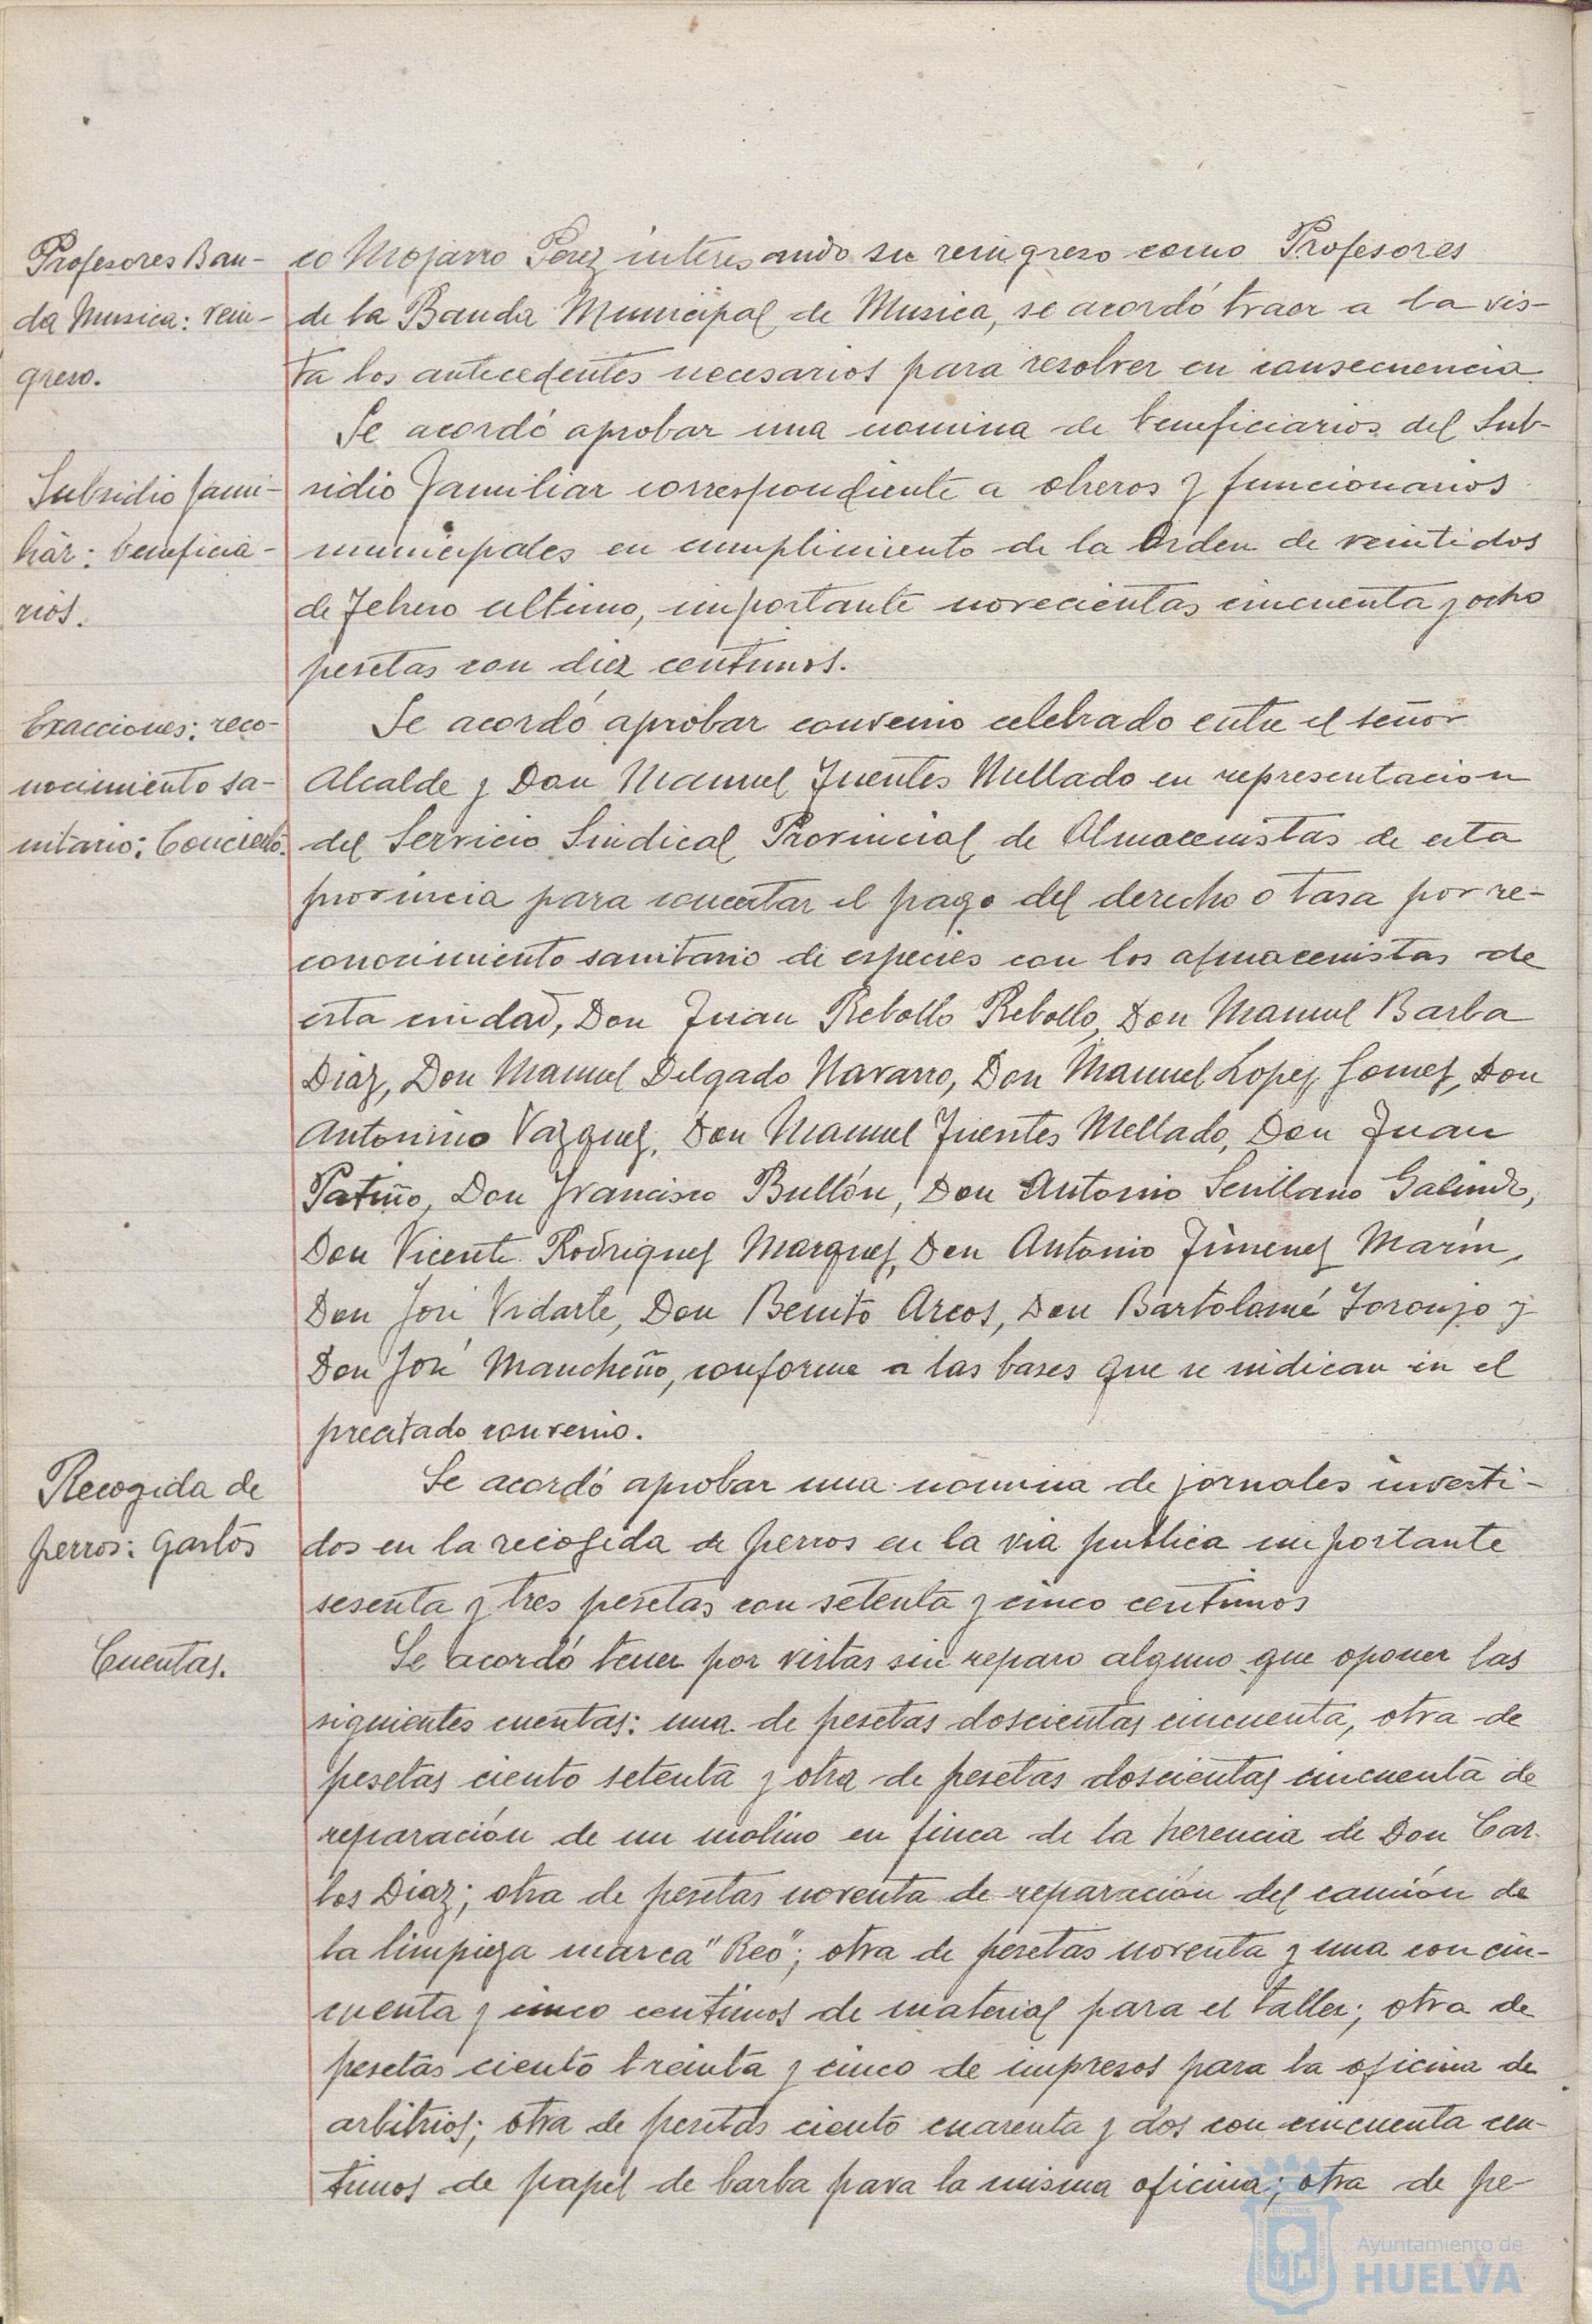 Profesores Ban-
da Musica: rein-
greso.
co Mojarro Perez interesando su reingreso como Profesores
de la Banda Municipal de Musica, se acordó traer a la vis-
ta los antecedentes necesarios para resolver en consecuencia.
Se acordó aprobar una nomina de beneficiarios del Sub-
Subsidio fami-
liar: beneficia-
rios.
sidio Familiar correspondiente a obreros y funcionarios
municipales en cumplimiento de la Orden de veintidos
de Febrero ultimo, importante novecientas cincuenta y ocho
pesetas con diez centimos.
Exacciones: reco-
nocimiento sa-
nitario: Concierto.
Se acordó aprobar convenio celebrado entre el señor
Alcalde y Don Manuel Fuentes Mellado en representacion
del Servicio Sindical Provincial de Almacenistas de esta
provincia para concertar el pago del derecho o tasa por re-
conocimiento sanitario de especies con los almacenistas de
esta ciudad, Don Juan Rebollo Rebollo, Don Manuel Barba
Diaz, Don Manuel Delgado Navarro, Don Manuel Lopez Gomez, Don
Antonino Vazquez, Don Manuel Fuentes Mellado, Don Juan
Patiño, Don Francisco Bullón, Don Antonio Sevillano Galindo,
Don Vicente Rodriguez Marquez, Don Antonio Jimenez Marín,
Don José Vidarte, Don Benito Arcos, Don Bartolomé Toronjo y
Don José Mancheño, conforme a las bases que se indican en el
precitado convenio.
Recogida de
perros: gastos
Se acordó aprobar una nomina de jornales inverti-
dos en la recogida de perros en la via publica importante
sesenta y tres pesetas con setenta y cinco centimos
Cuentas.
Se acordó tener por vistas sin reparo alguno que oponer las
siguientes cuentas: una de pesetas doscientas cincuenta, otra de
pesetas ciento setenta y otra de pesetas doscientas cincuenta de
reparación de un molino en finca de la herencia de Don Car-
los Diaz; otra de pesetas noventa de reparación del camión de
la limpieza marca "Reo"; otra de pesetas noventa y una con cin-
cuenta y cinco centimos de material para el taller; otra de
pesetas ciento treinta y cinco de impresos para la oficina de
arbitrios; otra de pesetas ciento cuarenta y dos con cincuenta cen-
timos de papel de barba para la misma oficina; otra de pe-
Ayuntamiento de
HUELVA